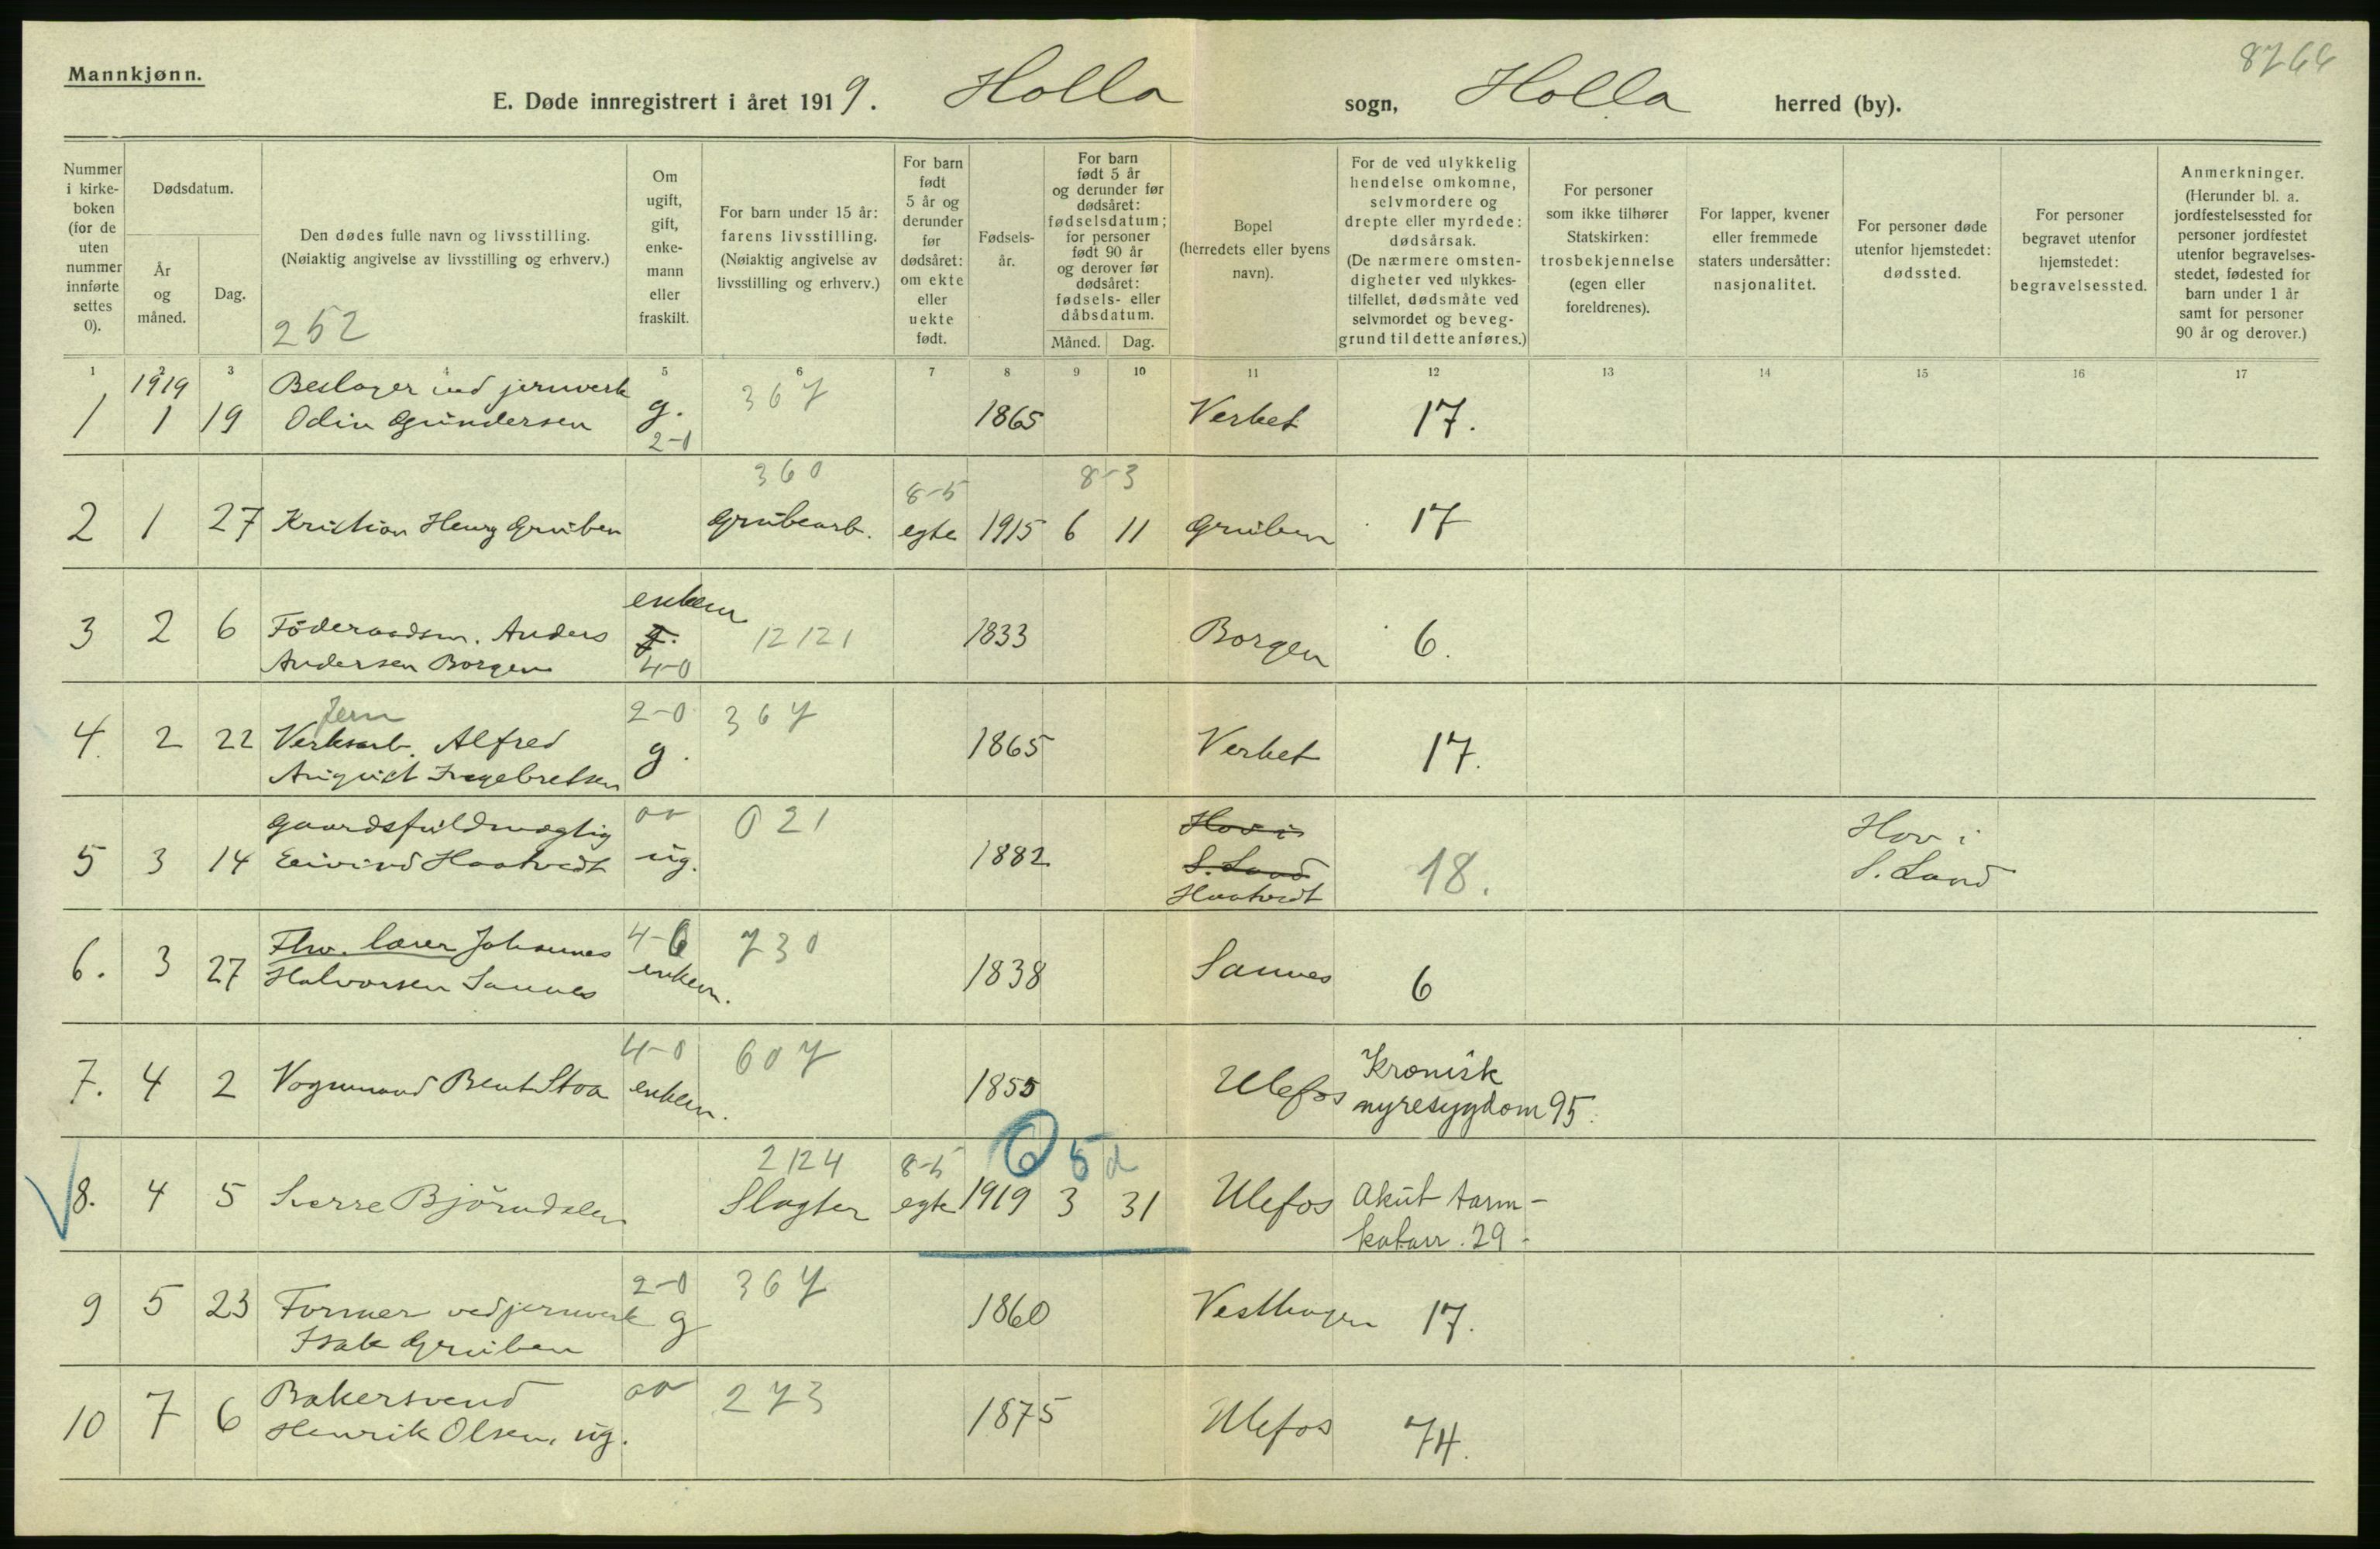 Mannkjønn.
8766
E. Døde innregistrert i året 1919. Holla sogn, Holla herred (by).
Nummer i kirke- boken (for de uten nummer innførte settes 0).
Dødsdatum.
År og måned.
Dag.
Den dødes fulle navn og livsstilling.
(Nøiaktig angivelse av livsstilling og erhverv.)
252
Om ugift, gift, enke- mann eller fraskilt.
For barn under 15 år: farens livsstilling. (Nøiaktig angivelse av livsstilling og erhverv.)
For barn født 5 år og derunder før dødsåret: om ekte eller uekte født.
Fødsels- år.
For barn født 5 år og derunder før dødsåret: fødselsdatum; for personer født 90 år og derover før dødsåret: fødsels- eller dåbsdatum.
Måned. Dag.
Bopel (herredets eller byens navn).
For de ved ulykkelig hendelse omkomne, selvmordere og drepte eller myrdede: dødsårsak. (De nærmere omsten- digheter ved ulykkes- tilfellet, dødsmåte ved selvmordet og beveg- grund til dette anføres.)
For personer som ikke tilhører Statskirken: trosbekjennelse (egen eller foreldrenes).
For lapper, kvener eller fremmede staters undersåtter: nasjonalitet.
For personer døde utenfor hjemstedet: dødssted.
For personer begravet utenfor hjemstedet: begravelsessted.
Anmerkninger. (Herunder bl. a. jordfestelsessted for personer jordfestet utenfor begravelses- stedet, fødested for barn under 1 år samt for personer 90 år og derover.)
1 2 3 4 5 6 7 8 9 10 11 12 13 14 15 16 17
1919 Beslager ved jernverk 367
1 1 19 Odin Gundersen g. 1865 Verket 17.
2-0
360 8-5 8-3
2 1 27 Kristian Henry Gruben Grubearb. egte 1915 6 11 Gruben 17
enkem
3 2 6 Föderaadsm. Anders g. 12121 1833 Borgen 6.
Andersen Borgen 4-0
Jern 2-0 367
4. 2 22 Verksarb. Alfred g. 1865 Verket 17.
August Ingebretsen
Gaardsfuldmægtig 021 Hov i Hov i
5 3 14 Eivind Haatvedt ug. 1882 S. Land 18. S. Land
Haatvedt
Fhv. lærer Johannes 4-0 730
6. 3 27 Halvorsen Sannes enkem. 1838 Sannes 6
4-0 607 Kronisk
7. 4 2 Vognmand Bent Stoa enkem. 1855 Ulefos nyresygdom 95.
2124 8-5 6 5 d
8. 4 5 Sverre Björndalen Slagter egte 1919 3 31 Ulefos Akut tarm-
katarr. 29
2-0 367
9 5 23 Former ved jernverk g 1860 Vesthagen 17.
Isak Gruben
Bakersvend 273
10 7 6 Henrik Olsen, ug. 1875 Ulefos 74.